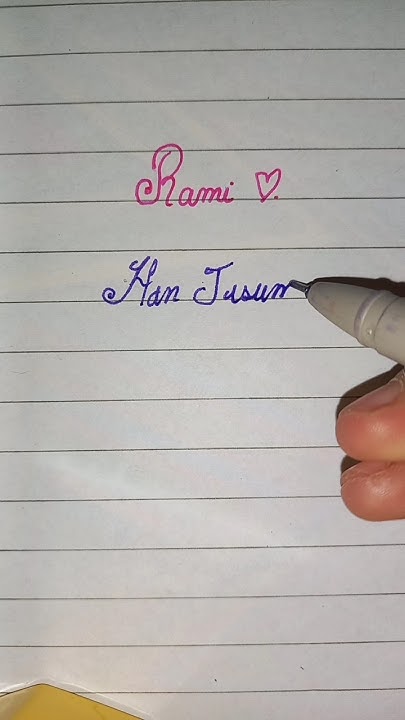 Rami ♡.
Han Jusum